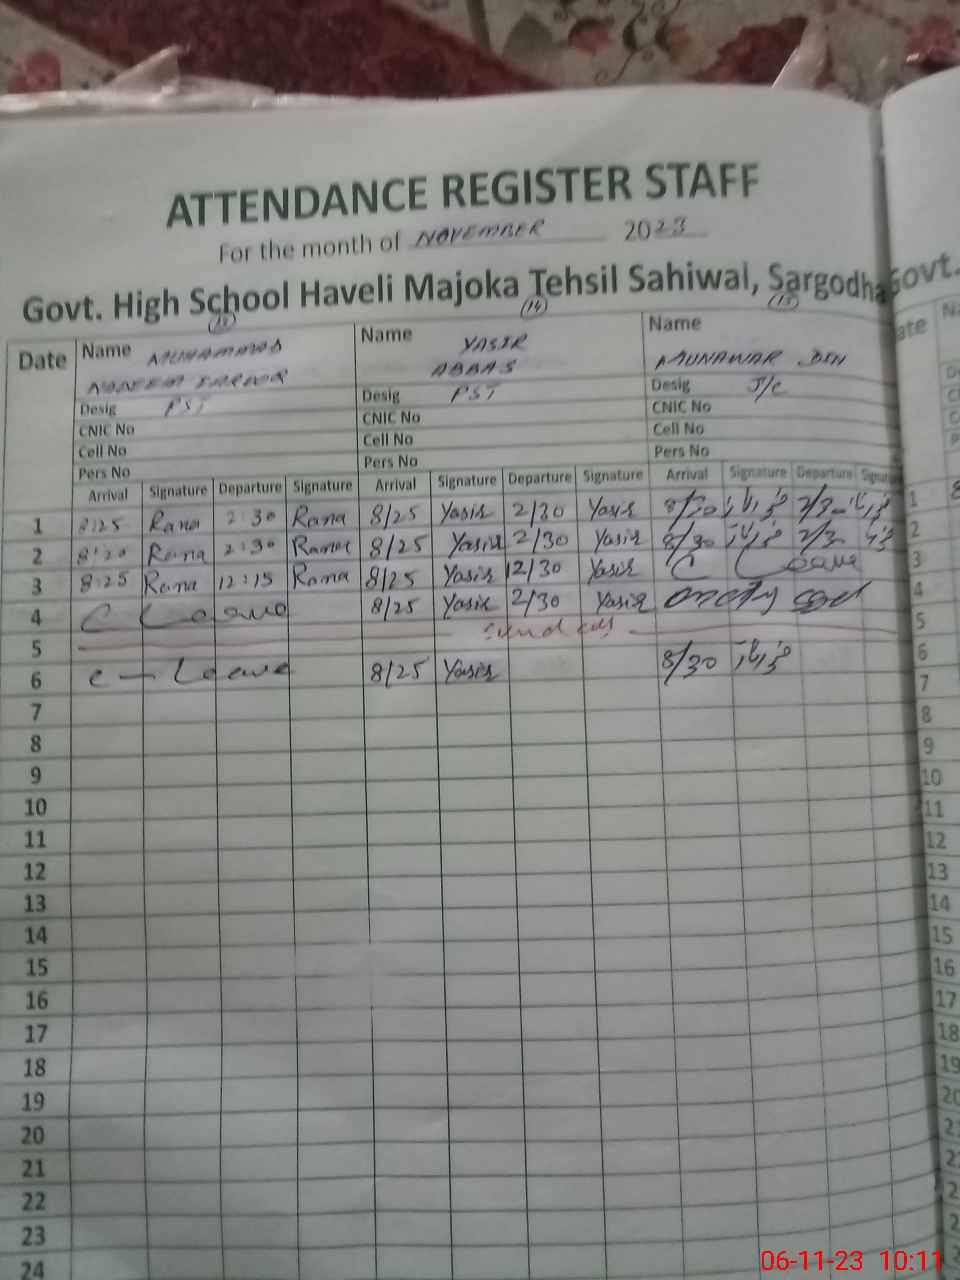 ATTENDANCE REGISTER STAFF
For the month of NOVEMBER 2023
Govt. High School Haveli Majoka Tehsil Sahiwal, Sargodha Govt.
(14) (15)
Date Name MUHAMMAD Name YASIR Name ate
NADEEM SARWAR ABBAS MUNAWAR DIN
Desig PST Desig PST Desig J/C
CNIC No CNIC No CNIC No
Cell No Cell No Cell No
Pers No Pers No Pers No
Arrival Signature Departure Signature Arrival Signature Departure Signature Arrival Signature Departure Signatu
1 8:25 Rana 2:30 Rana 8/25 Yasir 2/30 Yasir 8/30 2/30 1
2 8:20 Rana 2:30 Rana 8/25 Yasir 2/30 Yasir 8/30 2/30 2
3 8:25 Rana 12:15 Rana 8/25 Yasir 12/30 Yasir C Leave 3
4 C Leave 8/25 Yasir 2/30 Yasir 4
5 5
6 C - Leave 8/25 Yasir 8/30 6
7 7
8 8
9 9
10 10
11 11
12 12
13 13
14 14
15 15
16 16
17 17
18 18
19 19
20 20
21
22
23
24
06-11-23 10:11